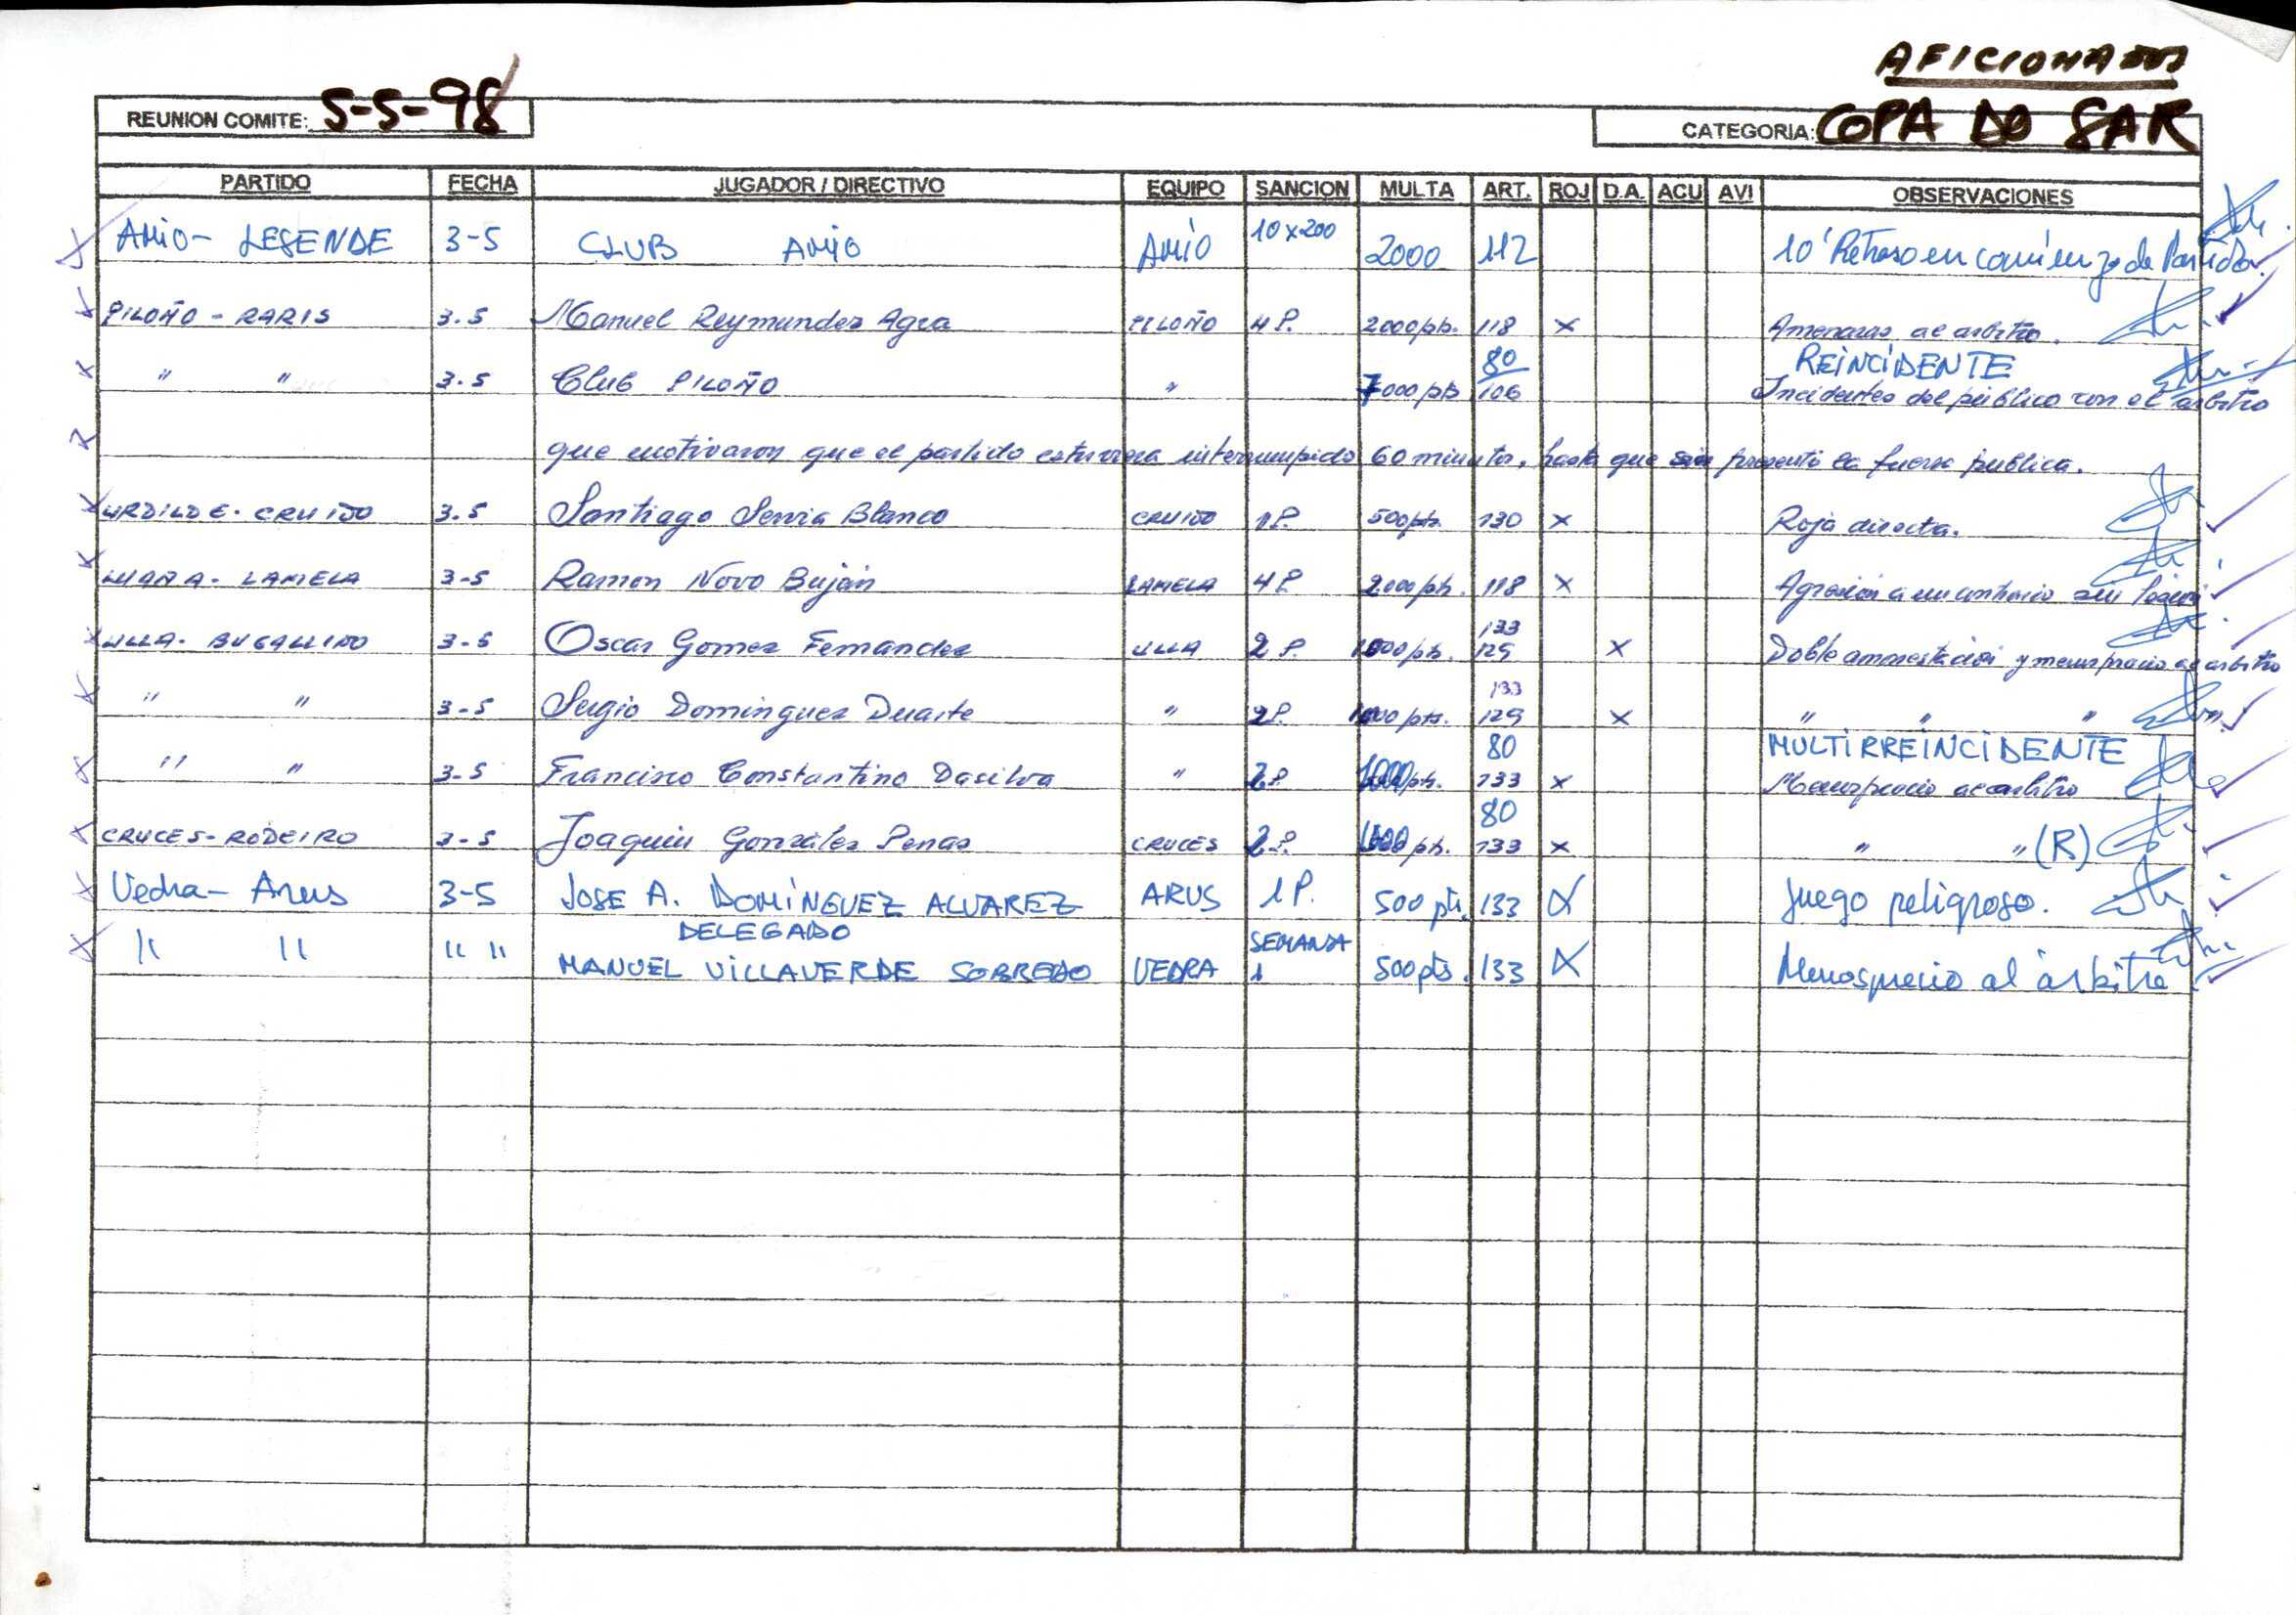 AFICIONADOS
REUNION COMITE: 5-5-98
CATEGORIA: COPA DO SAR
PARTIDO FECHA JUGADOR / DIRECTIVO EQUIPO SANCION MULTA ART. ROJ D.A. ACU AVI OBSERVACIONES
AMIO - LESENDE 3-5 CLUB AMIO AMIO 10 x 200 2000 112 10' Retraso en comienzo de Partido.
PILOÑO - RARIS 3.5 Manuel Reymundez Agra PILOÑO 4 P. 2000 pts. 118 x Amenazas al arbitro.
" " 3.5 Club PILOÑO " 7000 pts 80 106 REINCIDENTE Incidentes del público con el arbitro
que motivaron que el partido estuviera interrumpido 60 minutos, hasta que presentó la fuerza publica.
URDILDE - CRUIDO 3.5 Santiago Senra Blanco CRUIDO 1 P. 500 pts. 130 x Roja directa.
LUAÑA - LAMELA 3-5 Ramon Novo Buján LAMELA 4 P 2000 pts. 118 x Agresión a un contrario sin
ULLA - BUGALLIDO 3-5 Oscar Gomez Fernandez ULLA 2 P. 1000 pts. 133 129 x Doble amonestación y menosprecio al arbitro
" " 3-5 Sergio Dominguez Duarte " 2 P. 1000 pts. 133 129 x " " "
" " 3-5 Francisco Constantino Dasilva " 2 P. 1000 pts. 80 133 x MULTIRREINCIDENTE Menosprecio al arbitro
CRUCES - RODEIRO 3-5 Joaquin González Penas CRUCES 2 P. 1000 pts. 80 133 x " " (R)
Vedra - Arus 3-5 JOSE A. DOMÍNGUEZ ALVAREZ ARUS 1 P. 500 pts. 133 X Juego peligroso.
" " " " DELEGADO MANUEL VILLAVERDE SOBREDO VEDRA SEMANA 1 500 pts. 133 X Menosprecio al árbitro